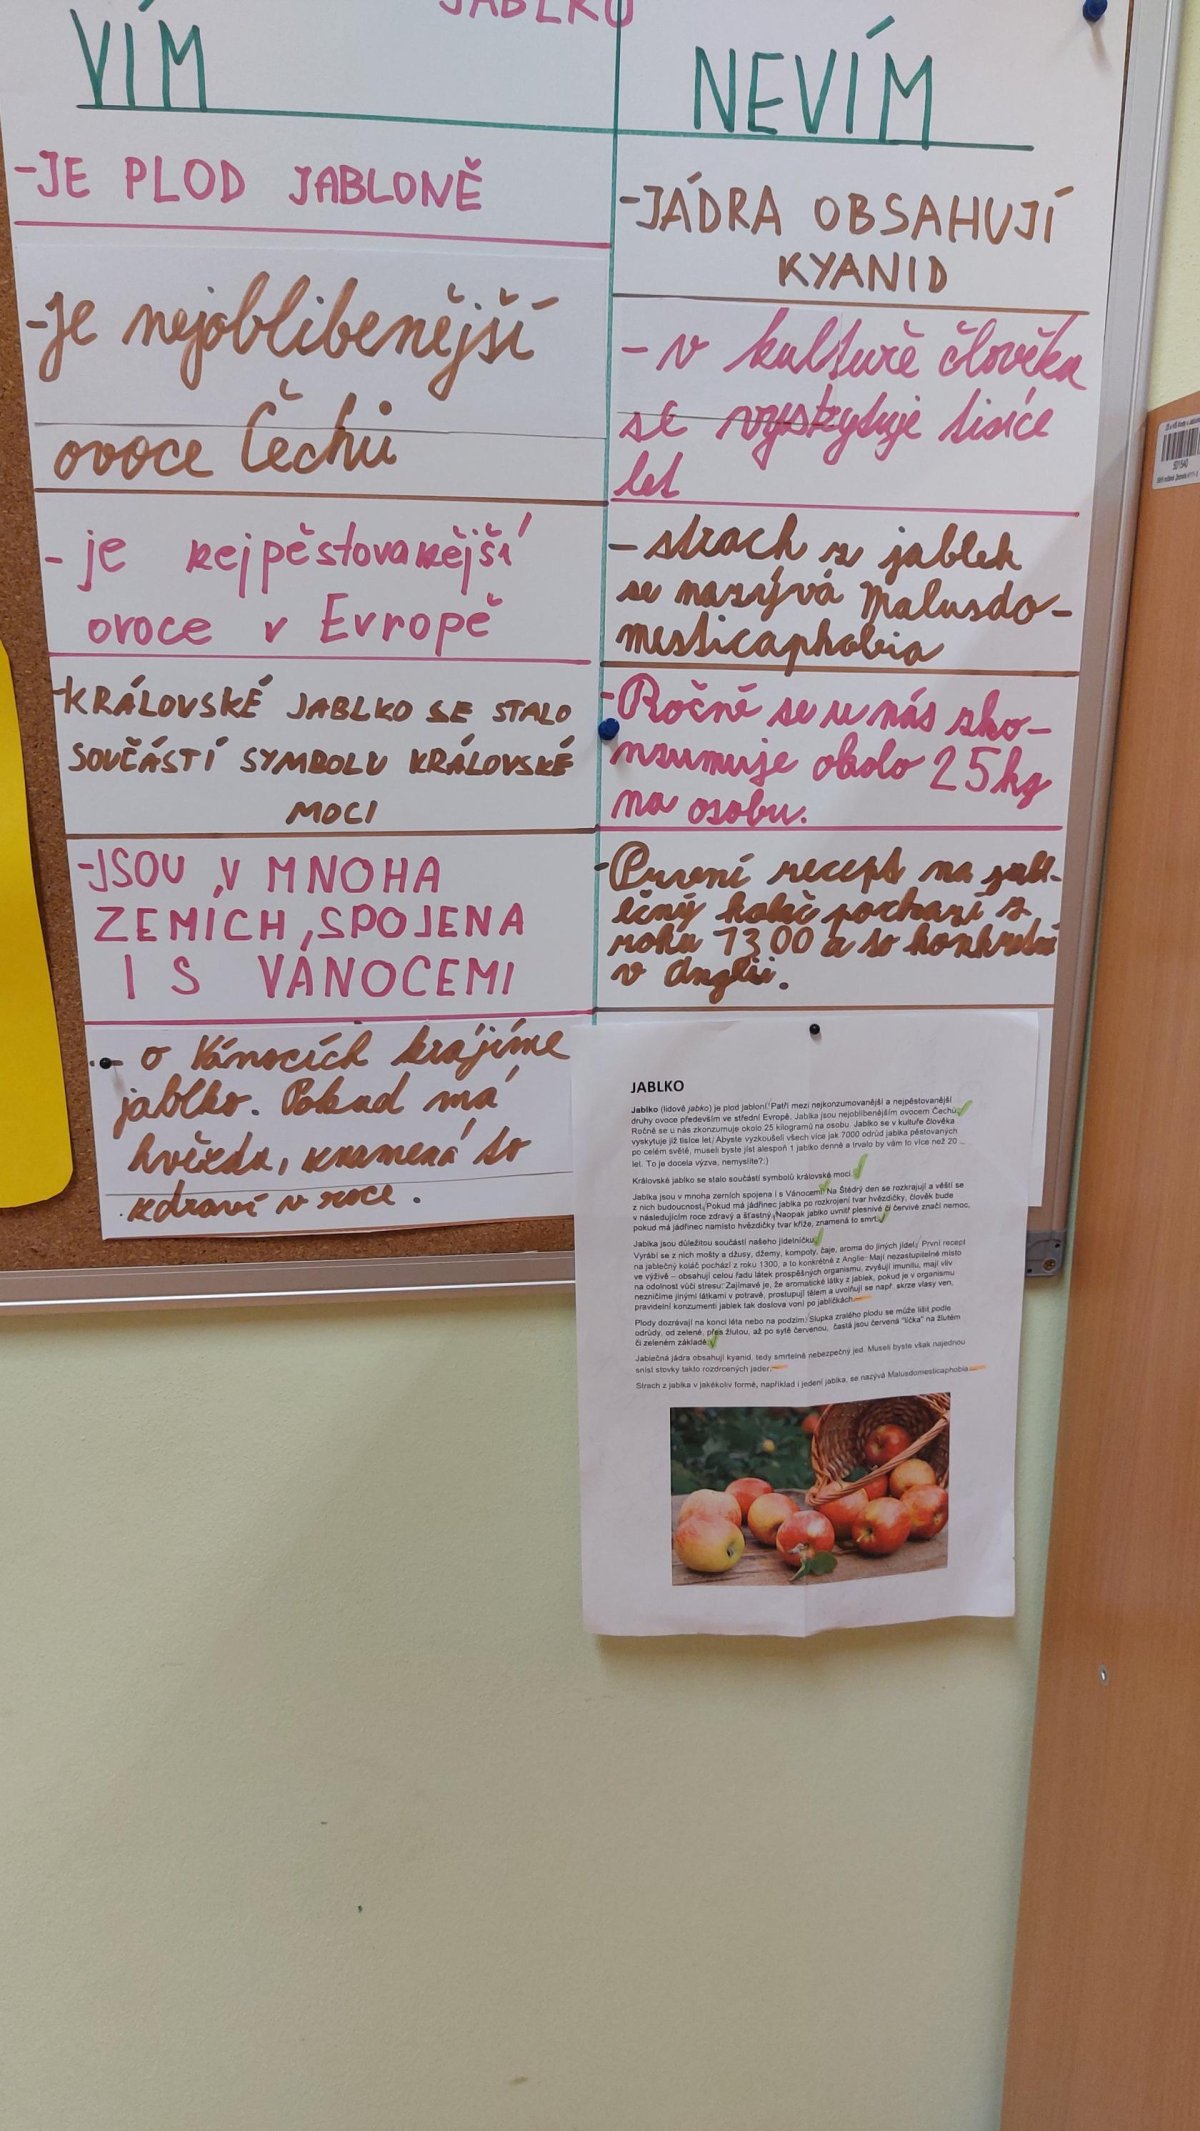 JABLKO
VÍM
-JE PLOD JABLONĚ
-Je nejoblíbenější
ovoce Čechů
- je nejpěstovanější
ovoce v Evropě
-KRÁLOVSKÉ JABLKO SE STALO
SOUČÁSTÍ SYMBOLU KRÁLOVSKÉ
MOCI
-JSOU V MNOHA
ZEMÍCH SPOJENA
I S VÁNOCEMI
- o Vánocích krájíme
jablko. Pokud má
hvězdu, znamená to
zdraví v roce.
NEVÍM
-JÁDRA OBSAHUJÍ
KYANID
- v kultuře člověka
se vyskytuje tisíce
let
- strach z jablek
se nazývá Malusdo-
mesticaphobia
-Ročně se u nás zko-
nzumuje okolo 25 kg
na osobu.
-První recept na jabl-
ečný koláč pochází z
roku 1300 a to konkrétně
v Anglii.
JABLKO
Jablko (lidově jabko) je plod jabloní. Patří mezi nejkonzumovanější a nejpěstovanější
druhy ovoce především ve střední Evropě. Jablka jsou nejoblíbenějším ovocem Čechů.
Ročně se u nás zkonzumuje okolo 25 kilogramů na osobu. Jablko se v kultuře člověka
vyskytuje již tisíce let. Abyste vyzkoušeli všech více jak 7000 odrůd jablka pěstovaných
po celém světě, museli byste jíst alespoň 1 jablko denně a trvalo by vám to více než 20
let. To je docela výzva, nemyslíte?:)
Královské jablko se stalo součástí symbolů královské moci.
Jablka jsou v mnoha zemích spojena i s Vánocemi. Na Štědrý den se rozkrajují a věští se
z nich budoucnost. Pokud má jádřinec jablka po rozkrojení tvar hvězdičky, člověk bude
v následujícím roce zdravý a šťastný. Naopak jablko uvnitř plesnivé či červivé značí nemoc,
pokud má jádřinec namísto hvězdičky tvar kříže, znamená to smrt.
Jablka jsou důležitou součástí našeho jídelníčku.
Vyrábí se z nich mošty a džusy, džemy, kompoty, čaje, aroma do jiných jídel. První recept
na jablečný koláč pochází z roku 1300, a to konkrétně z Anglie. Mají nezastupitelné místo
ve výživě – obsahují celou řadu látek prospěšných organismu, zvyšují imunitu, mají vliv
na odolnost vůči stresu. Zajímavé je, že aromatické látky z jablek, pokud je v organismu
nezničíme jinými látkami v potravě, prostupují tělem a uvolňují se např. skrze vlasy ven,
pravidelní konzumenti jablek tak doslova voní po jablíčkách.
Plody dozrávají na konci léta nebo na podzim. Slupka zralého plodu se může lišit podle
odrůdy, od zelené, přes žlutou, až po sytě červenou, častá jsou červená "líčka" na žlutém
či zeleném základě.
Jablečná jádra obsahují kyanid, tedy smrtelně nebezpečný jed. Museli byste však najednou
sníst stovky takto rozdrcených jader.
Strach z jablka v jakékoliv formě, například i jedení jablka, se nazývá Malusdomesticaphobia.